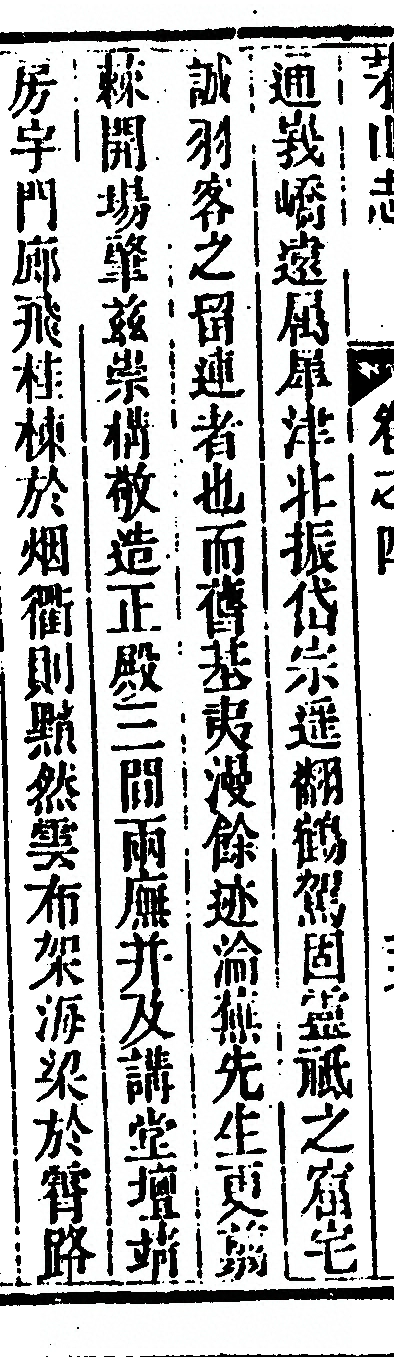 茅山志 卷之四
通峩嶠遠属犀津北振岱宗遥翻鶴駕固靈祇之窟宅
誠羽客之留連者也而舊基夷漫餘迹淪蕪先生更翦
棘開場肇兹崇構敬造正殿三間兩廡并及講堂壇靖
房宇門廊飛桂棟於烟衢則黯然雲布架海梁於霄路